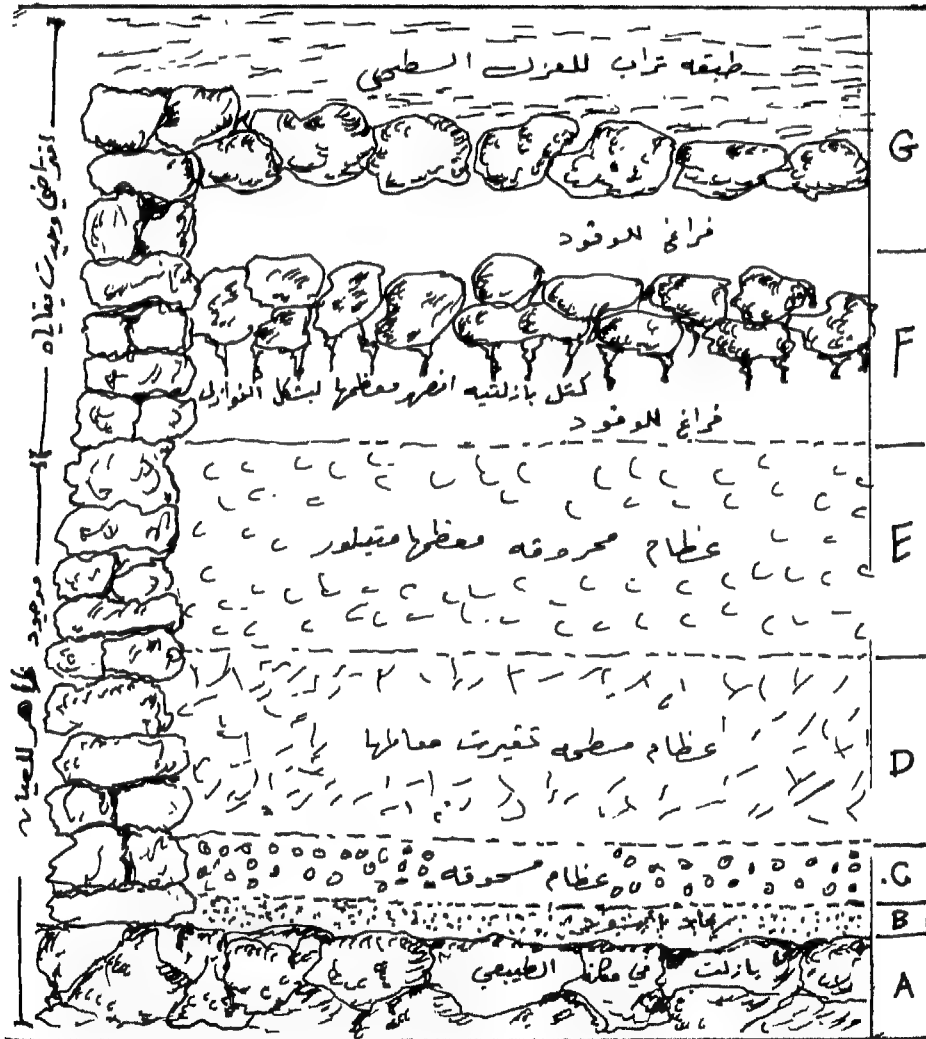 طبقه تراب للعزل السطحي
G
فراغ للوقود
F
كتل بازلتيه انصهر معظمها بشكل النوازل
فراغ للوقود
E
عظام محروقه معظمها متبلور
D
عظام مسطحه تغيرت معالمها
عظام مسحوقه
C
B
بازلت في مكانه الطبيعي
A
افتراضي وجدت بقاياه
موجود
ظاهر للعيان